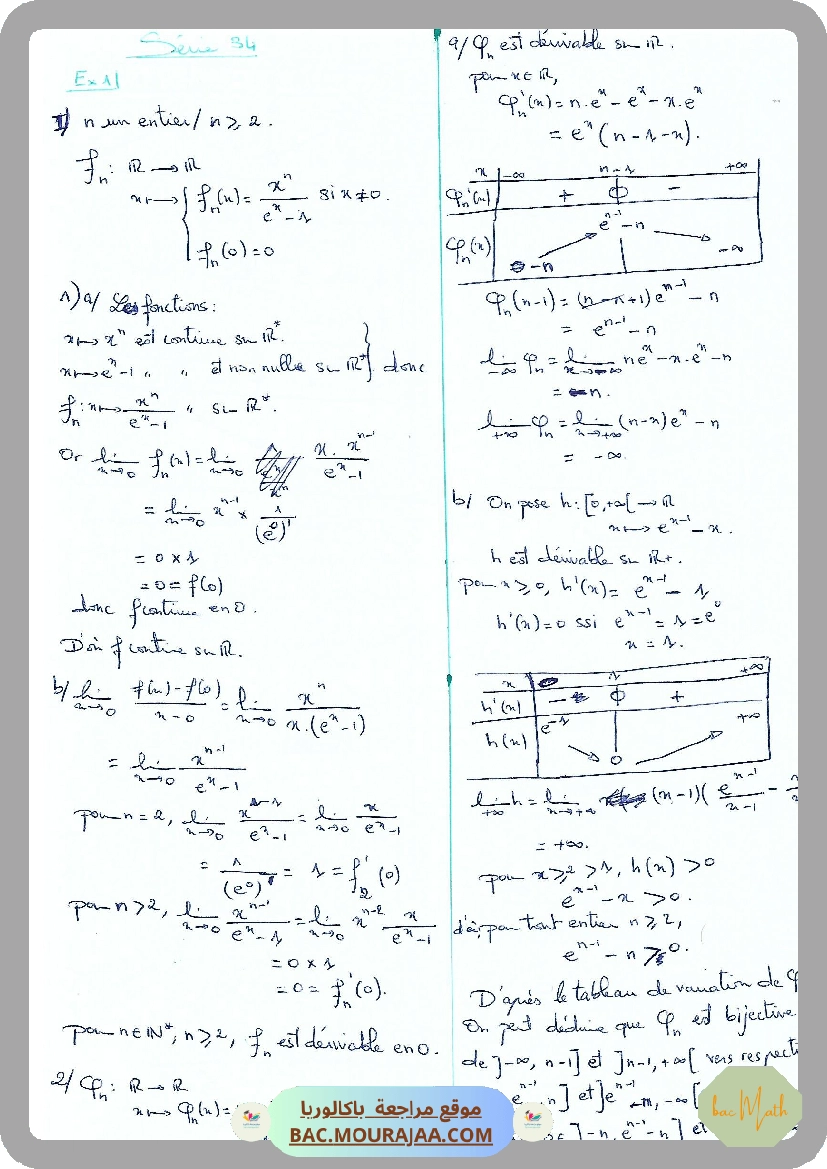 Série 34
Ex 1
I) n un entier / n ≥ 2.
fn : ℝ → ℝ
x ↦ { fn(x) = x^n / (e^x - 1) si x ≠ 0.
fn(0) = 0
1) a/ Les fonctions :
x ↦ x^n est continue sur ℝ*.
x ↦ e^x - 1 " " et non nulle sur ℝ* } donc
fn : x ↦ x^n / (e^x - 1) " sur ℝ*.
Or lim x→0 fn(x) = lim x→0 x · x^(n-1) / (e^x - 1)
= lim x→0 x^(n-1) × 1 / (e^0)'
= 0 × 1
= 0 = f(0)
donc f continue en 0.
D'où f continue sur ℝ.
b/ lim x→0 (f(x) - f(0)) / (x - 0) = lim x→0 x^n / (x·(e^x - 1))
= lim x→0 x^(n-1) / (e^x - 1)
pour n = 2, lim x→0 x^(2-1) / (e^x - 1) = lim x→0 x / (e^x - 1)
= 1 / (e^0) = 1 = f'2(0)
pour n > 2, lim x→0 x^(n-1) / (e^x - 1) = lim x→0 x^(n-2) x / (e^x - 1)
= 0 × 1
= 0 = f'n(0).
pour n ∈ ℕ*, n ≥ 2, fn est dérivable en 0.
2/ φn : ℝ → ℝ
x ↦ φn(x) =
a/ φn est dérivable sur ℝ.
pour x ∈ ℝ,
φn'(x) = n·e^x - e^x - x·e^x
= e^x (n - 1 - x).
x -∞ n-1 +∞
φn'(x) + 0 -
φn(x) -n e^(n-1) - n -∞
φn(n-1) = (n - n + 1) e^(n-1) - n
= e^(n-1) - n
lim -∞ φn = lim x→-∞ ne^x - x·e^x - n
= -n.
lim +∞ φn = lim x→+∞ (n-x) e^x - n
= -∞.
b/ On pose h : [0, +∞[ → ℝ
x ↦ e^(x-1) - x.
h est dérivable sur ℝ+.
pour x ≥ 0, h'(x) = e^(x-1) - 1
h'(x) = 0 ssi e^(x-1) = 1 = e^0
x = 1.
x 1 +∞
h'(x) - 0 +
h(x) e^-1 0 +∞
lim +∞ h = lim x→+∞ (x-1) ( e^(x-1) / (x-1) -
= +∞.
pour x ≥ 2 > 1, h(x) > 0
e^(x-1) - x > 0.
d'où, pour tout entier n ≥ 2,
e^(n-1) - n > 0.
D'après le tableau de variation de φ
On peut déduire que φn est bijective
de ]-∞, n-1] et ]n-1, +∞[ vers respecti
e^(n-1) n] et ]e^(n-1) -n, -∞[
]-n, e^(n-1) - n] et
موقع مراجعة باكالوريا
BAC.MOURAJAA.COM
bac Math